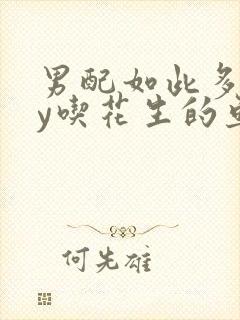 男配如此多
y喫花生的
何先雄